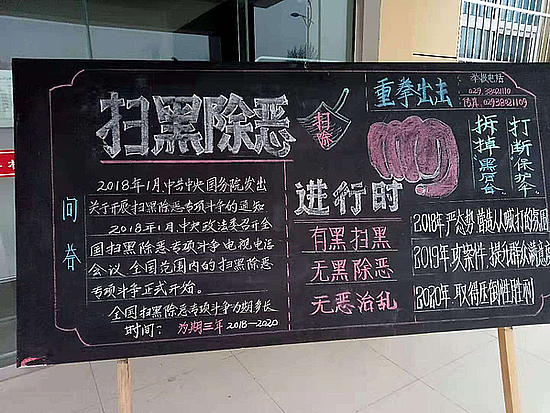 扫黑除恶
扫除
问答
2018年1月中共中央国务院发出
关于开展扫黑除恶专项斗争的通知
2018年1月,中央政法委召开全
国扫黑除恶专项斗争电视电话
会议 全国范围内的扫黑除恶
专项斗争正式开始。
全国扫黑除恶专项斗争为期多长
时间: 为期三年 2018—2020
进行时
有黑扫黑
无黑除恶
无恶治乱
重拳出击
举报电话
029.38021110
传真:029.38021109
打断"保护伞"
拆掉"黑后台"
2018年 严态势 首选认贼打的氛围
2019年 攻案件 提化群众满意度
2020年 取得压倒性胜利